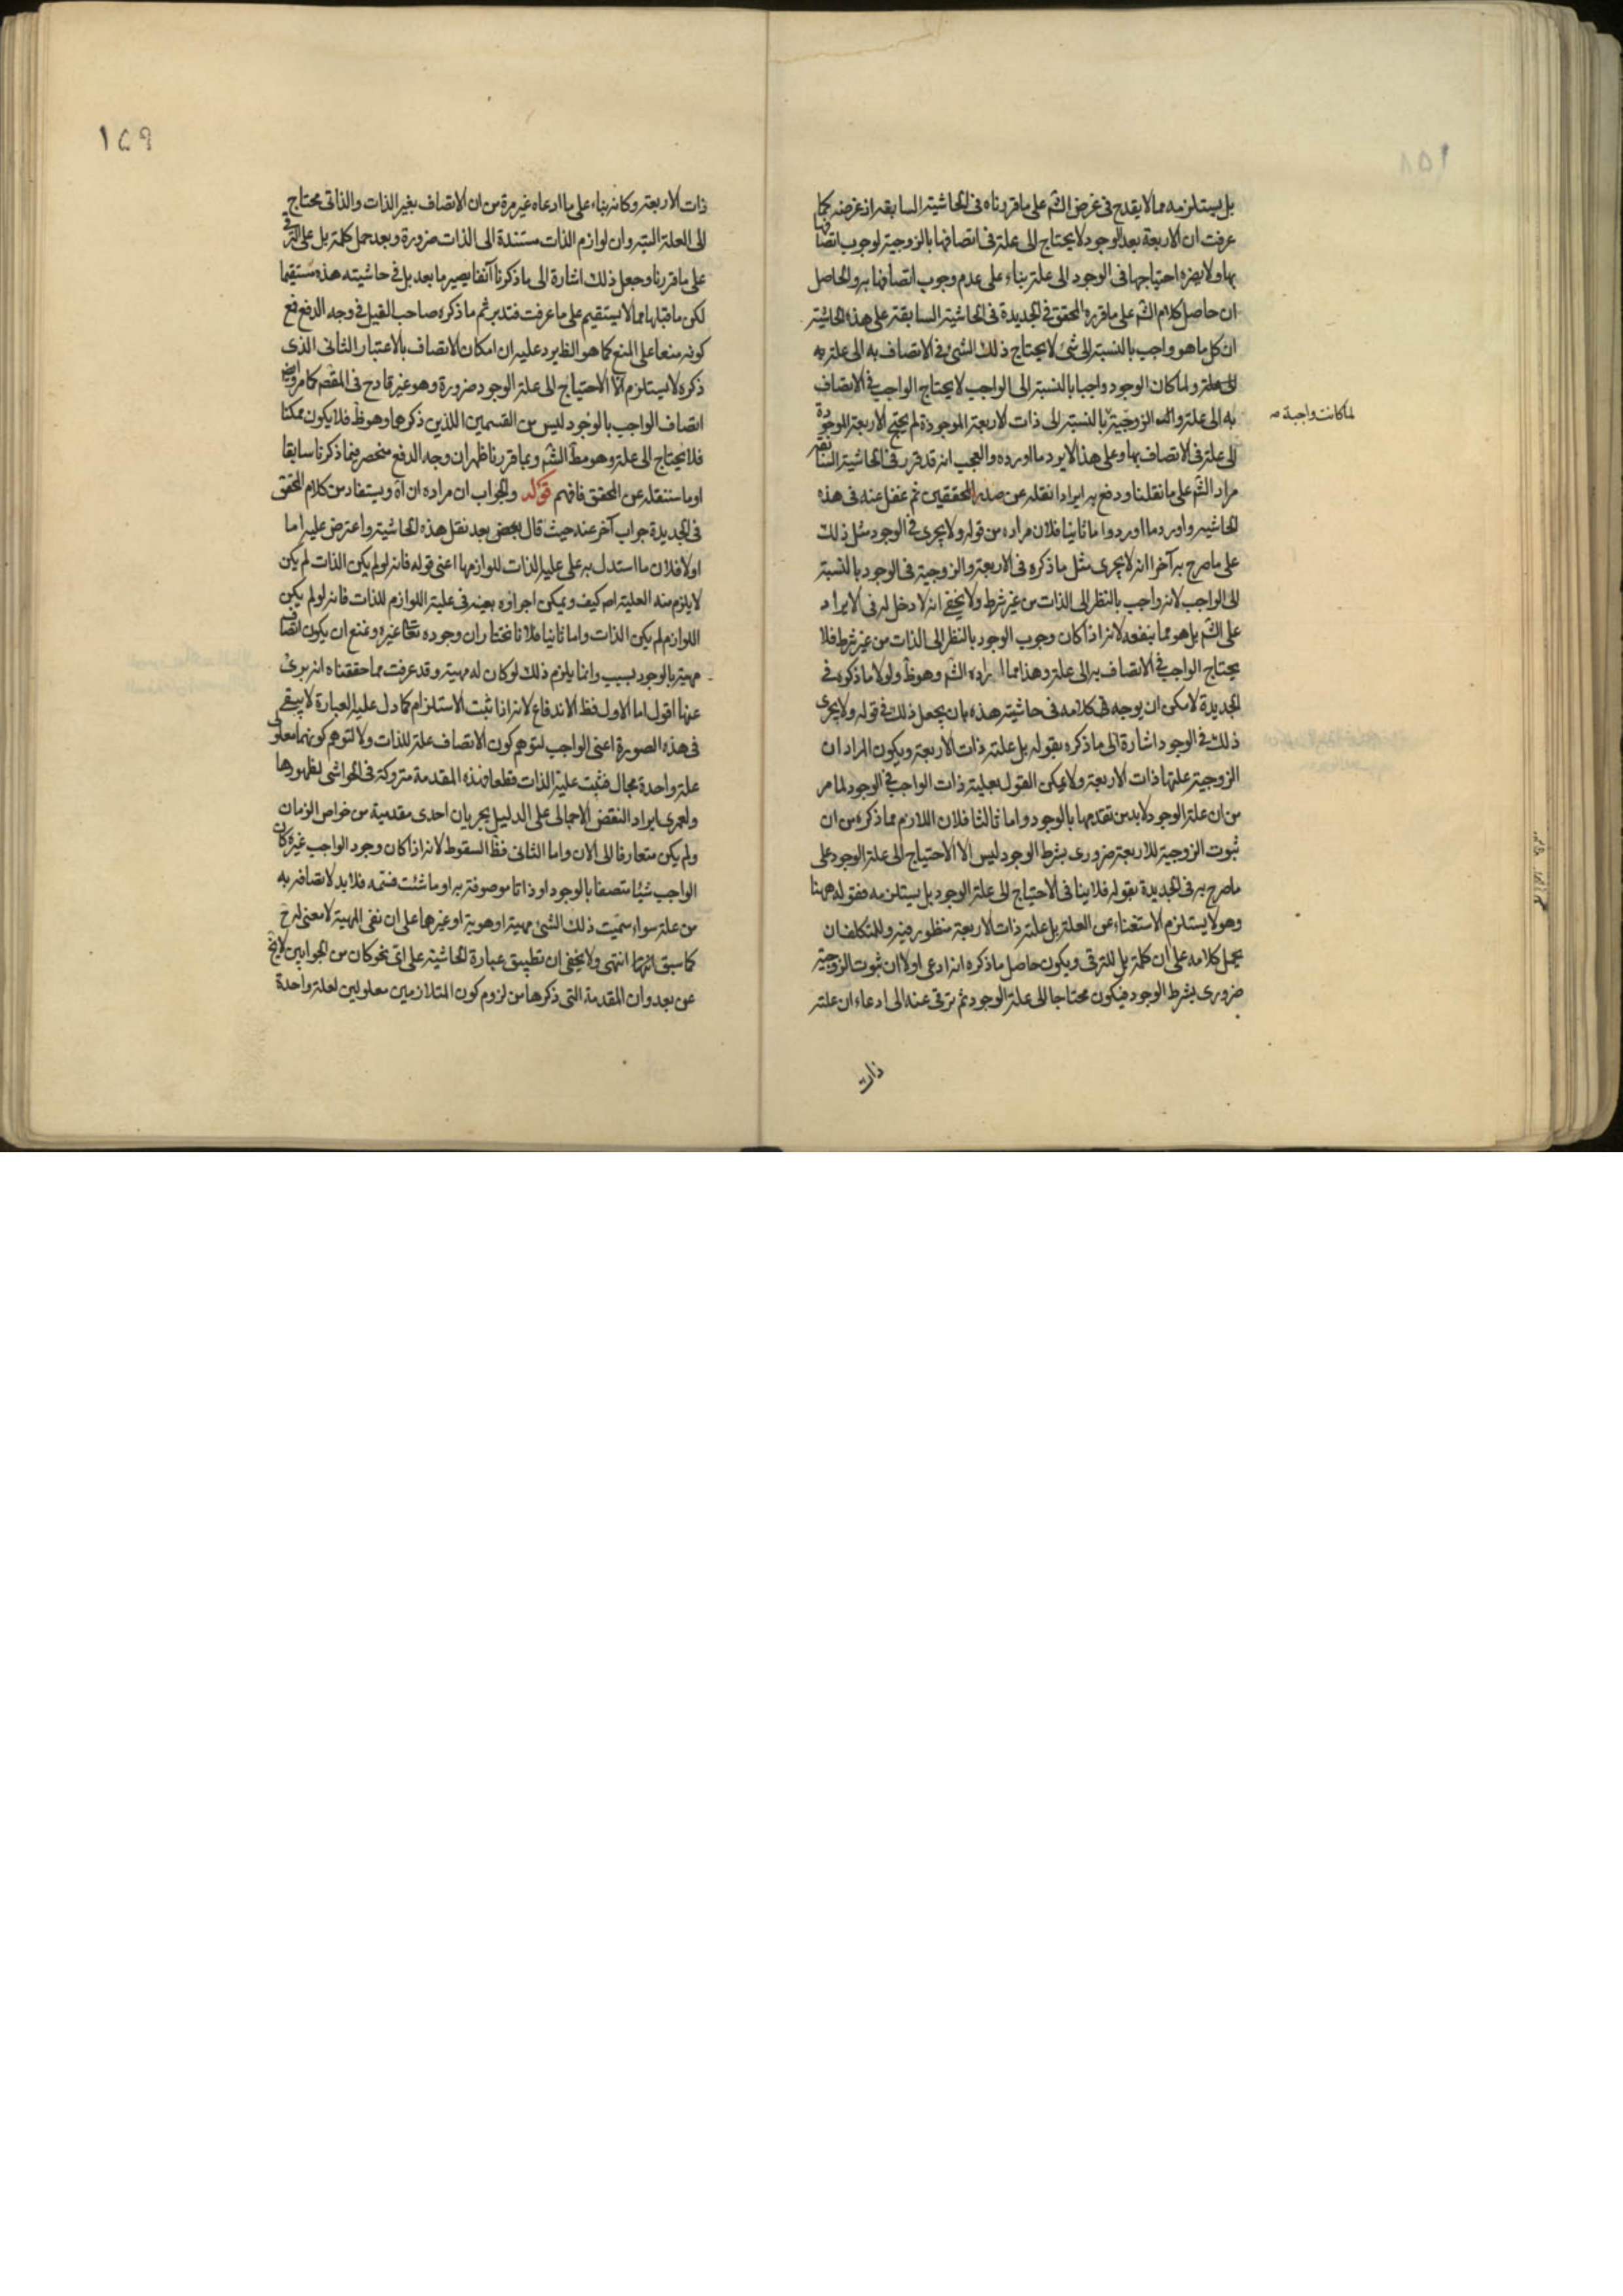 بل يستلزمه مما لا يقدح فى غرض الشم على ما قررناه فى الحاشية السابقة اذ غرضه كما
عرفت ان الاربعة بعد الوجود لا يحتاج الى علة فى اتصافها بالزوجية لوجوب اتصافها
بها ولا يضره احتياجها فى الوجود الى علة بناء على عدم وجوب اتصافها به والحاصل
ان حاصل كلام الشم على ما قرره المحقق فى الجديدة فى الحاشية السابقة على هذه الحاشية
ان كل ما هو واجب بالنسبة الى شئ لا يحتاج ذلك الشئ فى الاتصاف به الى علة به
الى علة ولما كان الوجود واجبا بالنسبة الى الواجب لا يحتاج الواجب فى الاتصاف
به الى علة والزوجية بالنسبة الى ذات الاربعة الموجودة لم يحتج الاربعة الموجودة
لما كانت واجبة
الى علة فى الاتصاف بها وعلى هذا لا يرد ما اورده والعجب انه قد قرر فى الحاشية السابقة
مراد الشم على ما نقلنا ودفع به ايرادا نقله عن صدر المحققين ثم غفل عنه فى هذه
الحاشية واورد ما اورد واما ثانيا فلان مراده من قوله ولا يجرى فى الوجود مثل ذلك
على ما صرح به آخرا انه لا يجرى مثل ما ذكره فى الاربعة والزوجية فى الوجود بالنسبة
الى الواجب لانه واجب بالنظر الى الذات من غير شرط ولا يخفى انه لا دخل له فى الايراد
على الشم بل هو مما ينفعه لانه اذا كان وجوب الوجود بالنظر الى الذات من غير شرط فلا
يحتاج الواجب فى الاتصاف به الى علة وهذا مما اراده الشم وهو ظ ولولا ما ذكره فى
الجديدة لامكن ان يوجه كلامه فى حاشيته هذه بان يجعل ذلك فى قوله ولا يجرى
ذلك فى الوجود اشارة الى ما ذكره بقوله بل علة ذات الاربعة ويكون المراد ان
الزوجية علتها ذات الاربعة ولا يمكن القول بعلية ذات الواجب فى الوجود لما مر
من ان علة الوجود لا بد من تقدمها بالوجود واما ثالثا فلان اللازم مما ذكره من ان
ثبوت الزوجية للاربعة ضرورى بشرط الوجود ليس الا الاحتياج الى علة الوجود على
ما صرح به فى الجديدة بقوله فلا ينافى الاحتياج الى علة الوجود بل يستلزمه فقوله ههنا
وهو لا يستلزم الاستغناء عن العلة بل علة ذات الاربعة منظور فيه وللمتكلف ان
يحمل كلامه على ان كلمة بل للترقى ويكون حاصل ما ذكره انه ادعى اولا ان ثبوت الزوجية
ضرورى بشرط الوجود فيكون محتاجا الى علة الوجود ثم ترقى عنه الى ادعاء ان علة
ذات
١٥٩
ذات الاربعة وكانه بناء على ما ادعاه غير مرة من ان الاتصاف بغير الذات والذاتى محتاج
الى العلة البتة وان لوازم الذات مستندة الى الذات ضرورة وبعد حمل كلمة بل على الترقى
على ما قررنا وجعل ذلك اشارة الى ما ذكرنا آنفا يصير ما بعد بل فى حاشيته هذه مستقيما
لكن ما قبلها مما لا يستقيم على ما عرفت فتدبر ثم ما ذكره صاحب القيل فى وجه الدفع مع
كونه منعا على المنع كما هو الظ يرد عليه ان امكان الاتصاف بالاعتبار الثانى الذى
ذكره لا يستلزم الا الاحتياج الى علة الوجود ضرورة وهو غير قادح فى المقصم كما مر وايض
اتصاف الواجب بالوجود ليس من القسمين اللذين ذكرهما وهو ظ فلا يكون ممكنا
فلا يحتاج الى علة وهو مط الشم وبما قررنا ظهر ان وجه الدفع منحصر فيما ذكرنا سابقا
او ما سننقله عن المحقق فافهم قوله والجواب ان مراده ان اه ويستفاد من كلام المحقق
فى الجديدة جواب آخر عنه حيث قال بعض بعد نقل هذه الحاشية واعترض عليه اما
اولا فلان ما استدل به على علية الذات للوازمها اعنى قوله فانه لو لم يكن الذات لم يكن
لا يلزم منه العلية اصم كيف ويمكن اجراؤه بعينه فى علية اللوازم للذات فانه لو لم يكن
اللوازم لم يكن الذات واما ثانيا فلانا نختار ان وجوده تعالى غيره ونمنع ان يكون اتصاف
مهية بالوجود بسبب وانما يلزم ذلك لو كان له مهية وقد عرفت مما حققناه انه برئ
عنها اقول اما الاول فظ الاندفاع لانه اذا ثبت الاستلزام كما دل عليه العبارة لا يبقى
فى هذه الصورة اعنى الواجب لتوهم كون الاتصاف علة للذات ولا لتوهم كونهما معلولى
علة واحدة مجال فثبت علية الذات قطعا فهذه المقدمة متروكة فى الحواشى لظهورها
ولعمرى ايراد النقض الاجمالى على الدليل بجريان احدى مقدميه من خواص الزمان
ولم يكن متعارفا الى الان واما الثانى فظ السقوط لانه اذا كان وجود الواجب غيره كان
الواجب شيئا متصفا بالوجود او ذاتا موصوفة به او ما شئت فسمه فلا بد لاتصافه به
من علة سواء سميت ذلك الشئ مهية او هوية او غيرها على ان نفى المهية لا معنى له ح
كما سبق انتهى ولا يخفى ان تطبيق عبارة الحاشية على اى نحو كان من الجوابين لا يخ
عن بعد وان المقدمة التى ذكرها من لزوم كون المتلازمين معلولين لعلة واحدة